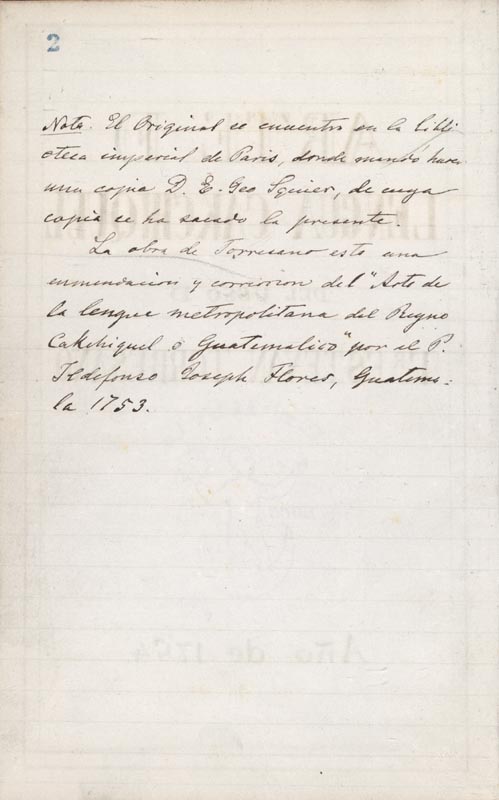 2
Nota. El Original se encuentra en la Bibli
oteca imperial de Paris, donde mandó hacer
una copia D. E. Geo Squier, de cuya
copia se ha sacado la presente.
La obra de Torresano esta una
enmendacion y corricion del "Arte de
la lengue metropolitana del Reyno
Cakchiquel ó Guatemalico" por el P.
Ildefonso Joseph Flores, Guatema-
la 1753.
Año de 1754